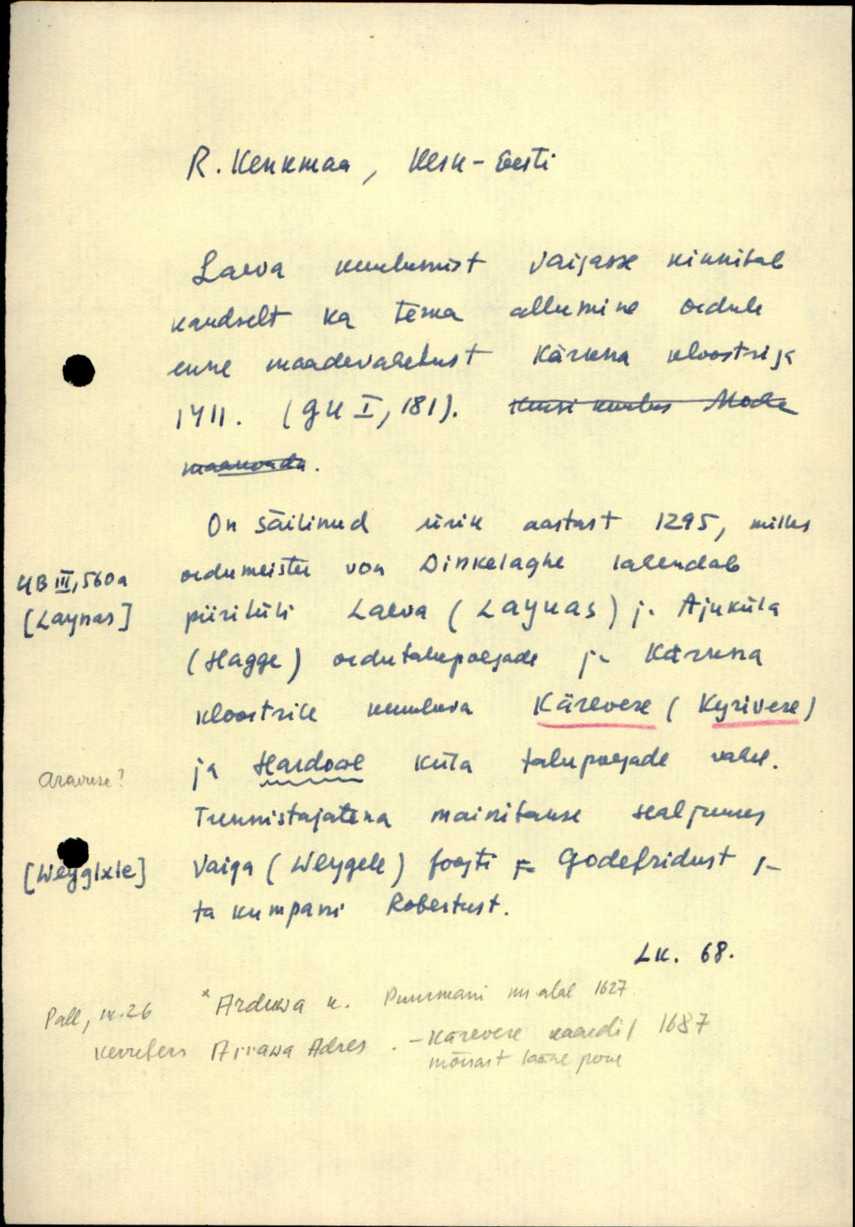 R. Kenkmaa, Kesk-Eesti
Laeva kuulumist Vaigasse kinnitab
kaudselt ka tema allumine ordule
enne maadevahetust Kärkna kloostriga
1411. (GU I, 181). Kursi kuulus Mocha
maakonda.
On säilinud ürik aastast 1295, milles
UB III, 560a
ordumeister von Dinkelaghe lahendab
[Laynas]
piiritüli Laeva (Laynas) ja Ajuküla
(Hagge) ordutalupoegade ja Kärkna
kloostrile kuuluva Kärevere (Kyrivere)
ja Hardowe küla talupoegade vahel.
Aravuse?
Tunnistajatena mainitakse sealjuures
[Weyglxle]
Vaiga (Weygele) foogti Godefridust ja
ta kumpani Robertust.
Lk. 68.
Pall, lk. 26 *Ardukva k. Puurmani m alal 1627
Arrawa Adres. - Kärevere kaardil 1687
mõisast lääne pool